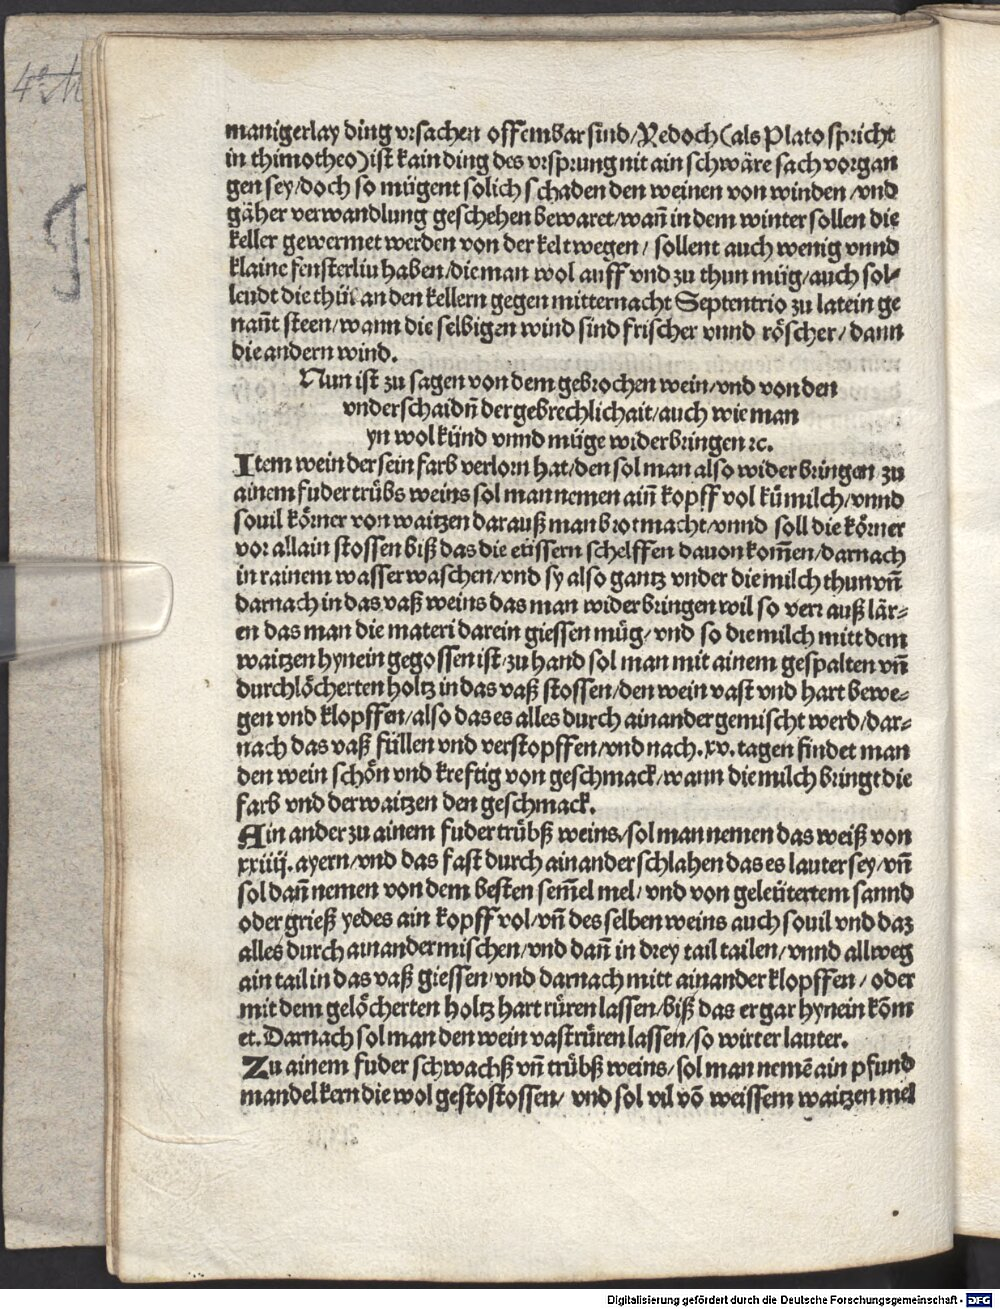 manigerlay ding vrsachen offembar sind/Yedoch(als Plato spricht
in thimotheo)ist kain ding des vrsprung nit ain schwäre sach vorgan
gen sey/doch so mügent solich schaden den weinen von winden/vnd
gäher verwandlung geschehen bewaret/wañ in dem winter sollen die
keller gewermet werden von der kelt wegen/ sollent auch wenig vnnd
klaine fensterliu haben/die man wol auff vnd zu thun müg/auch sol⸗
lendt die thür an den kellern gegen mitternacht Septentrio zu latein ge
nañt steen/wann die selbigen wind sind frischer vnnd röscher/dann
die andern wind.
Nun ist zu sagen von dem gebrochen wein/vnd von den
vnderschaidñ der gebrechlichait/auch wie man
yn wol künd vnnd müge widerbringen ꝛc.
Item wein der sein farb verlorn hat/den sol man also wider bringen zu
ainem fuder trübs weins sol man nemen aiñ kopff vol kümilch/vnnd
souil körner von waitzen darauß man brot macht/vnnd soll die körner
vor allain stossen biß das die eüssern schelffen dauon kom̃en/darnach
in rainem wasser waschen/vnd sy also gantz vnder die milch thun vñ
darnach in das vaß weins das man widerbringen wil so verr auß lär⸗
en das man die materi darein giessen müg/vnd so die milch mitt dem
waitzen hynein gegossen ist/zu hand sol man mit ainem gespalten vñ
durchlöcherten holtz in das vaß stossen/den wein vast vnd hart bewe⸗
gen vnd klopffen/also das es alles durch ainander gemischt werd/dar⸗
nach das vaß füllen vnd verstopffen/vnd nach.xv.tagen findet man
den wein schön vnd kreftig von geschmack/wann die milch bringt die
farb vnd der waitzen den geschmack.
Ain ander zu ainem fuder trübß weins/sol man nemen das weiß von
xxiiij.ayern/vnd das fast durch ain ander schlahen das es lauter sey/vñ
sol dañ nemen von dem besten sem̃el mel/vnd von geleütertem sannd
oder grieß yedes ain kopff vol/vñ des selben weins auch souil vnd daz
alles durch ainander mischen/vnd dañ in drey tail tailen/vnnd allweg
ain tail in das vaß giessen/vnd darnach mitt ainander klopffen/oder
mit dem gelöcherten holtz hart rüren lassen/biß das er gar hynein kõm
et.Darnach sol man den wein vast rüren lassen/so wirt er lauter.
Zu ainem fuder schwachß vñ trübß weins/sol man nemẽ ain pfund
mandelkern die wol gestostossen/ vnd sol vil võ weissem waitzen mel
Digitalisierung gefördert durch die Deutsche Forschungsgemeinschaft - DFG